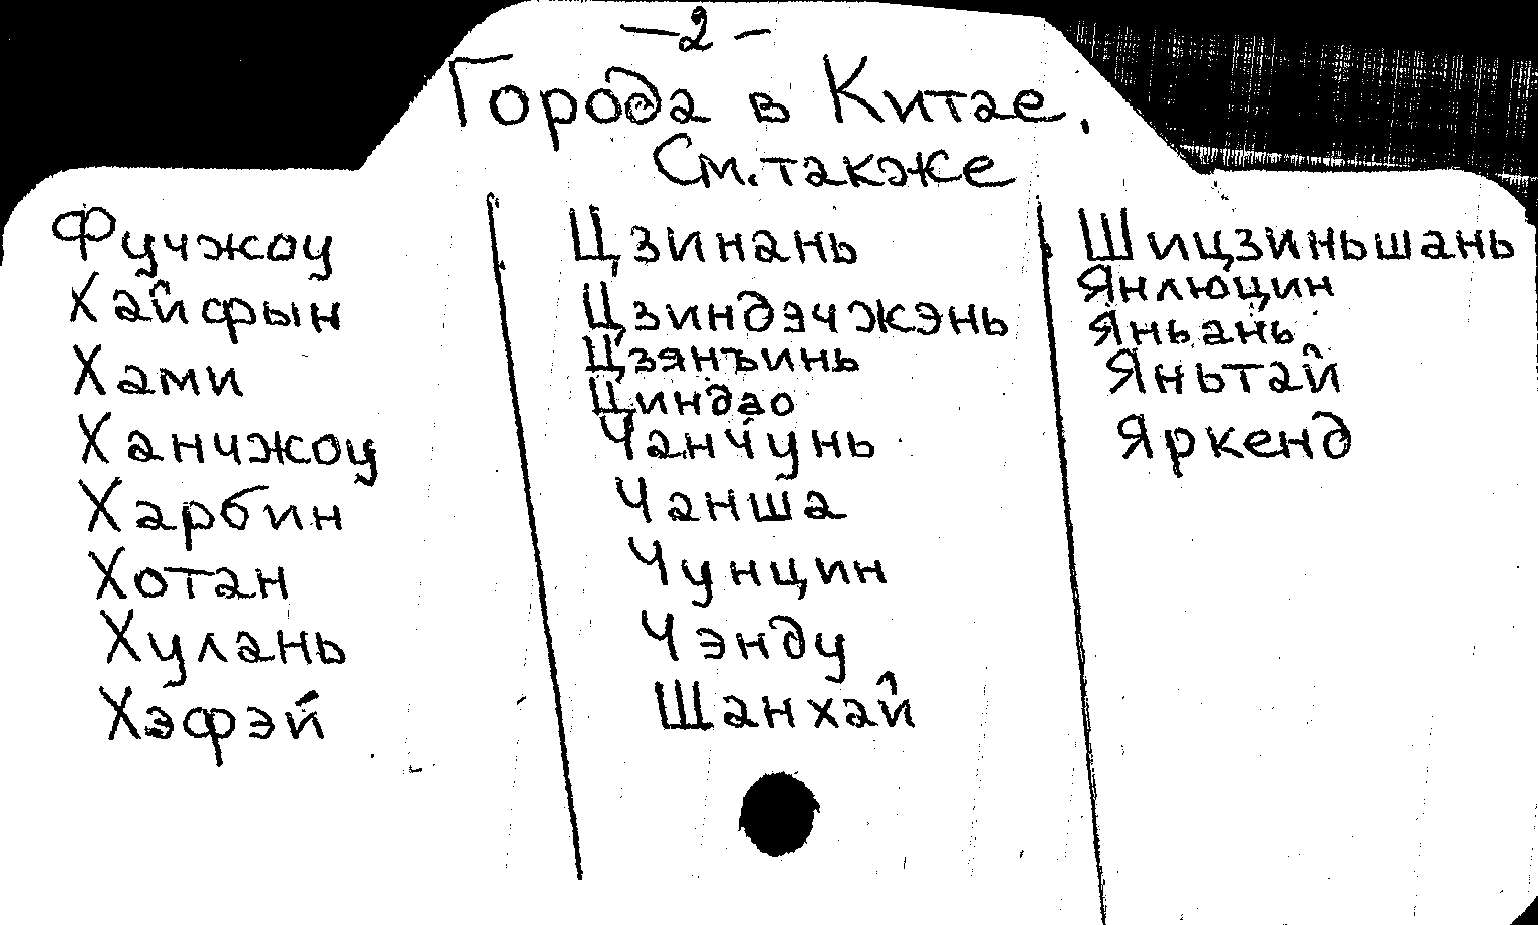 — 2 —
Города в Китае.
См. также
Фучжоу
Хайфын
Хами
Ханчжоу
Харбин
Хотан
Хулань
Хэфэй
Цзинань
Цзиндэчжэнь
Цзянъинь
Циндао
Чанчунь
Чанша
Чунцин
Чэнду
Шанхай
Шицзиньшань
Янлюцин
Яньань
Яньтай
Яркенд